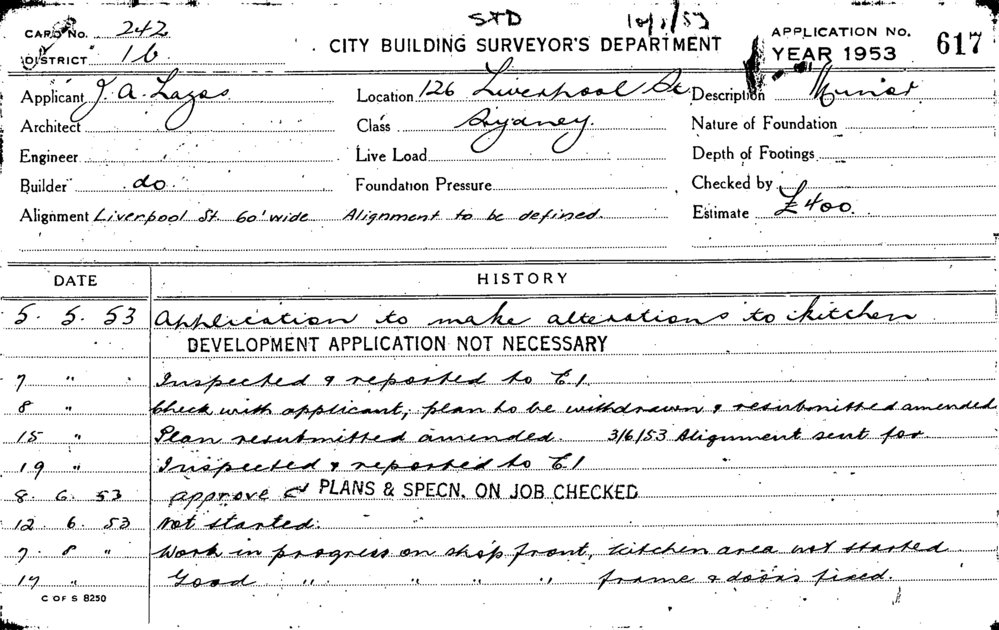 CARD No. 242
STD
10/8/53
DISTRICT 16
CITY BUILDING SURVEYOR'S DEPARTMENT
APPLICATION No.
YEAR 1953
617
Applicant J. A. Lazos
Location 126 Liverpool St.
Description Minor
Architect
Class Sydney.
Nature of Foundation
Engineer
Live Load
Depth of Footings
Builder do.
Foundation Pressure
Checked by
Alignment Liverpool St 60' wide Alignment to be defined.
Estimate £400.
DATE HISTORY
5. 5. 53 Application to make alterations to kitchen
DEVELOPMENT APPLICATION NOT NECESSARY
7 " Inspected & reported to C.I.
8 " Check with applicant, plan to be withdrawn & resubmitted amended
15 " Plan resubmitted amended. 3/6/53 Alignment sent for
19 " Inspected & reported to C.I
8. 6. 53 approve PLANS & SPECN. ON JOB CHECKED
12. 6. 53 Not started.
7. 8 " Work in progress on shop front, kitchen area not started
17 " Good " " " " frame & doors fixed.
C OF S 8250